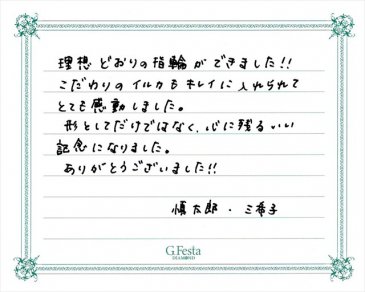 理想どおりの指輪ができました!!
こだわりのイルカもキレイに入れられて
とても感動しました。
形としてだけではなく、心に残るいい
記念になりました。
ありがとうございました!!
慎太郎・三希子
G.Festa
DIAMOND